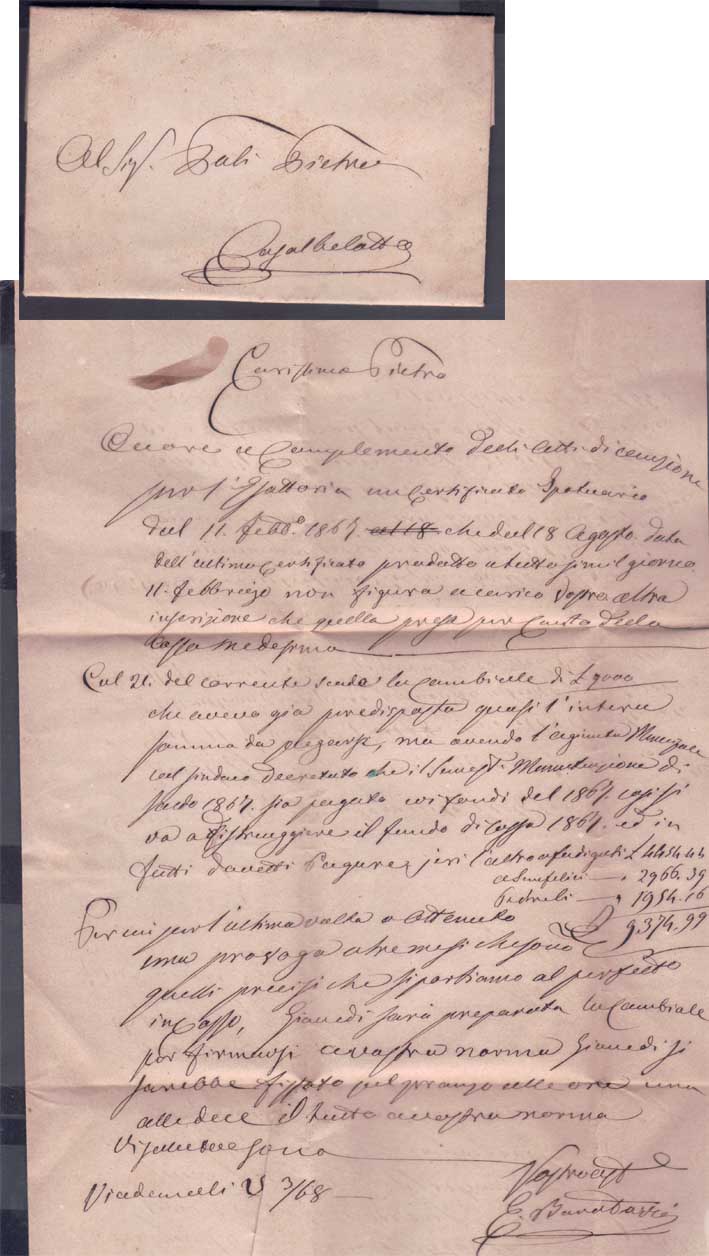 Al Sig.r Tali Pietro
Casalbelotto
Carissimo Pietro
Onore a Complemento degli atti di cauzione
per l'Esattoria un Certificato Ipotecario
dal 11. Febb.o 1867. al 18 che dal 18 Agosto data
dell'ultimo Certificato prodotto a tutto sim il giorno
11. febbrajo non figura a carico Vostro altra
inscrizione che quella presa per Conto della
Cassa medesima
Col 21. del corrente scade la Cambiale di £ 9000
che aveva già predisposta quasi l'intera
somma da pagarsi, ma avendo l'agiunta Municipale
col sindaco decretato che il di
saldo 1867. sia pagato coi fondi del 1867. così si
va a distruggere il fondo di cassa 1867. ed in
fatti dovetti Pagare jeri l'altro £ 4454.44
a Sanfelici — " 2966.39
Pedroli — " 1954.16
9.374.99
Per cui per l'ultima volta o ottenuto
una proroga a tre mesi che sono
quelli precisi che si portiamo al perfetto
incasso, Giovedi sarà preparata la Cambiale
per firmarsi a vostra norma Giovedi si
sarebbe fissato pel pranzo alle ore una
alle dece il tutto a vostra norma
Vi saluto e sono
Vostro aff
Viadana li 3/68
E.